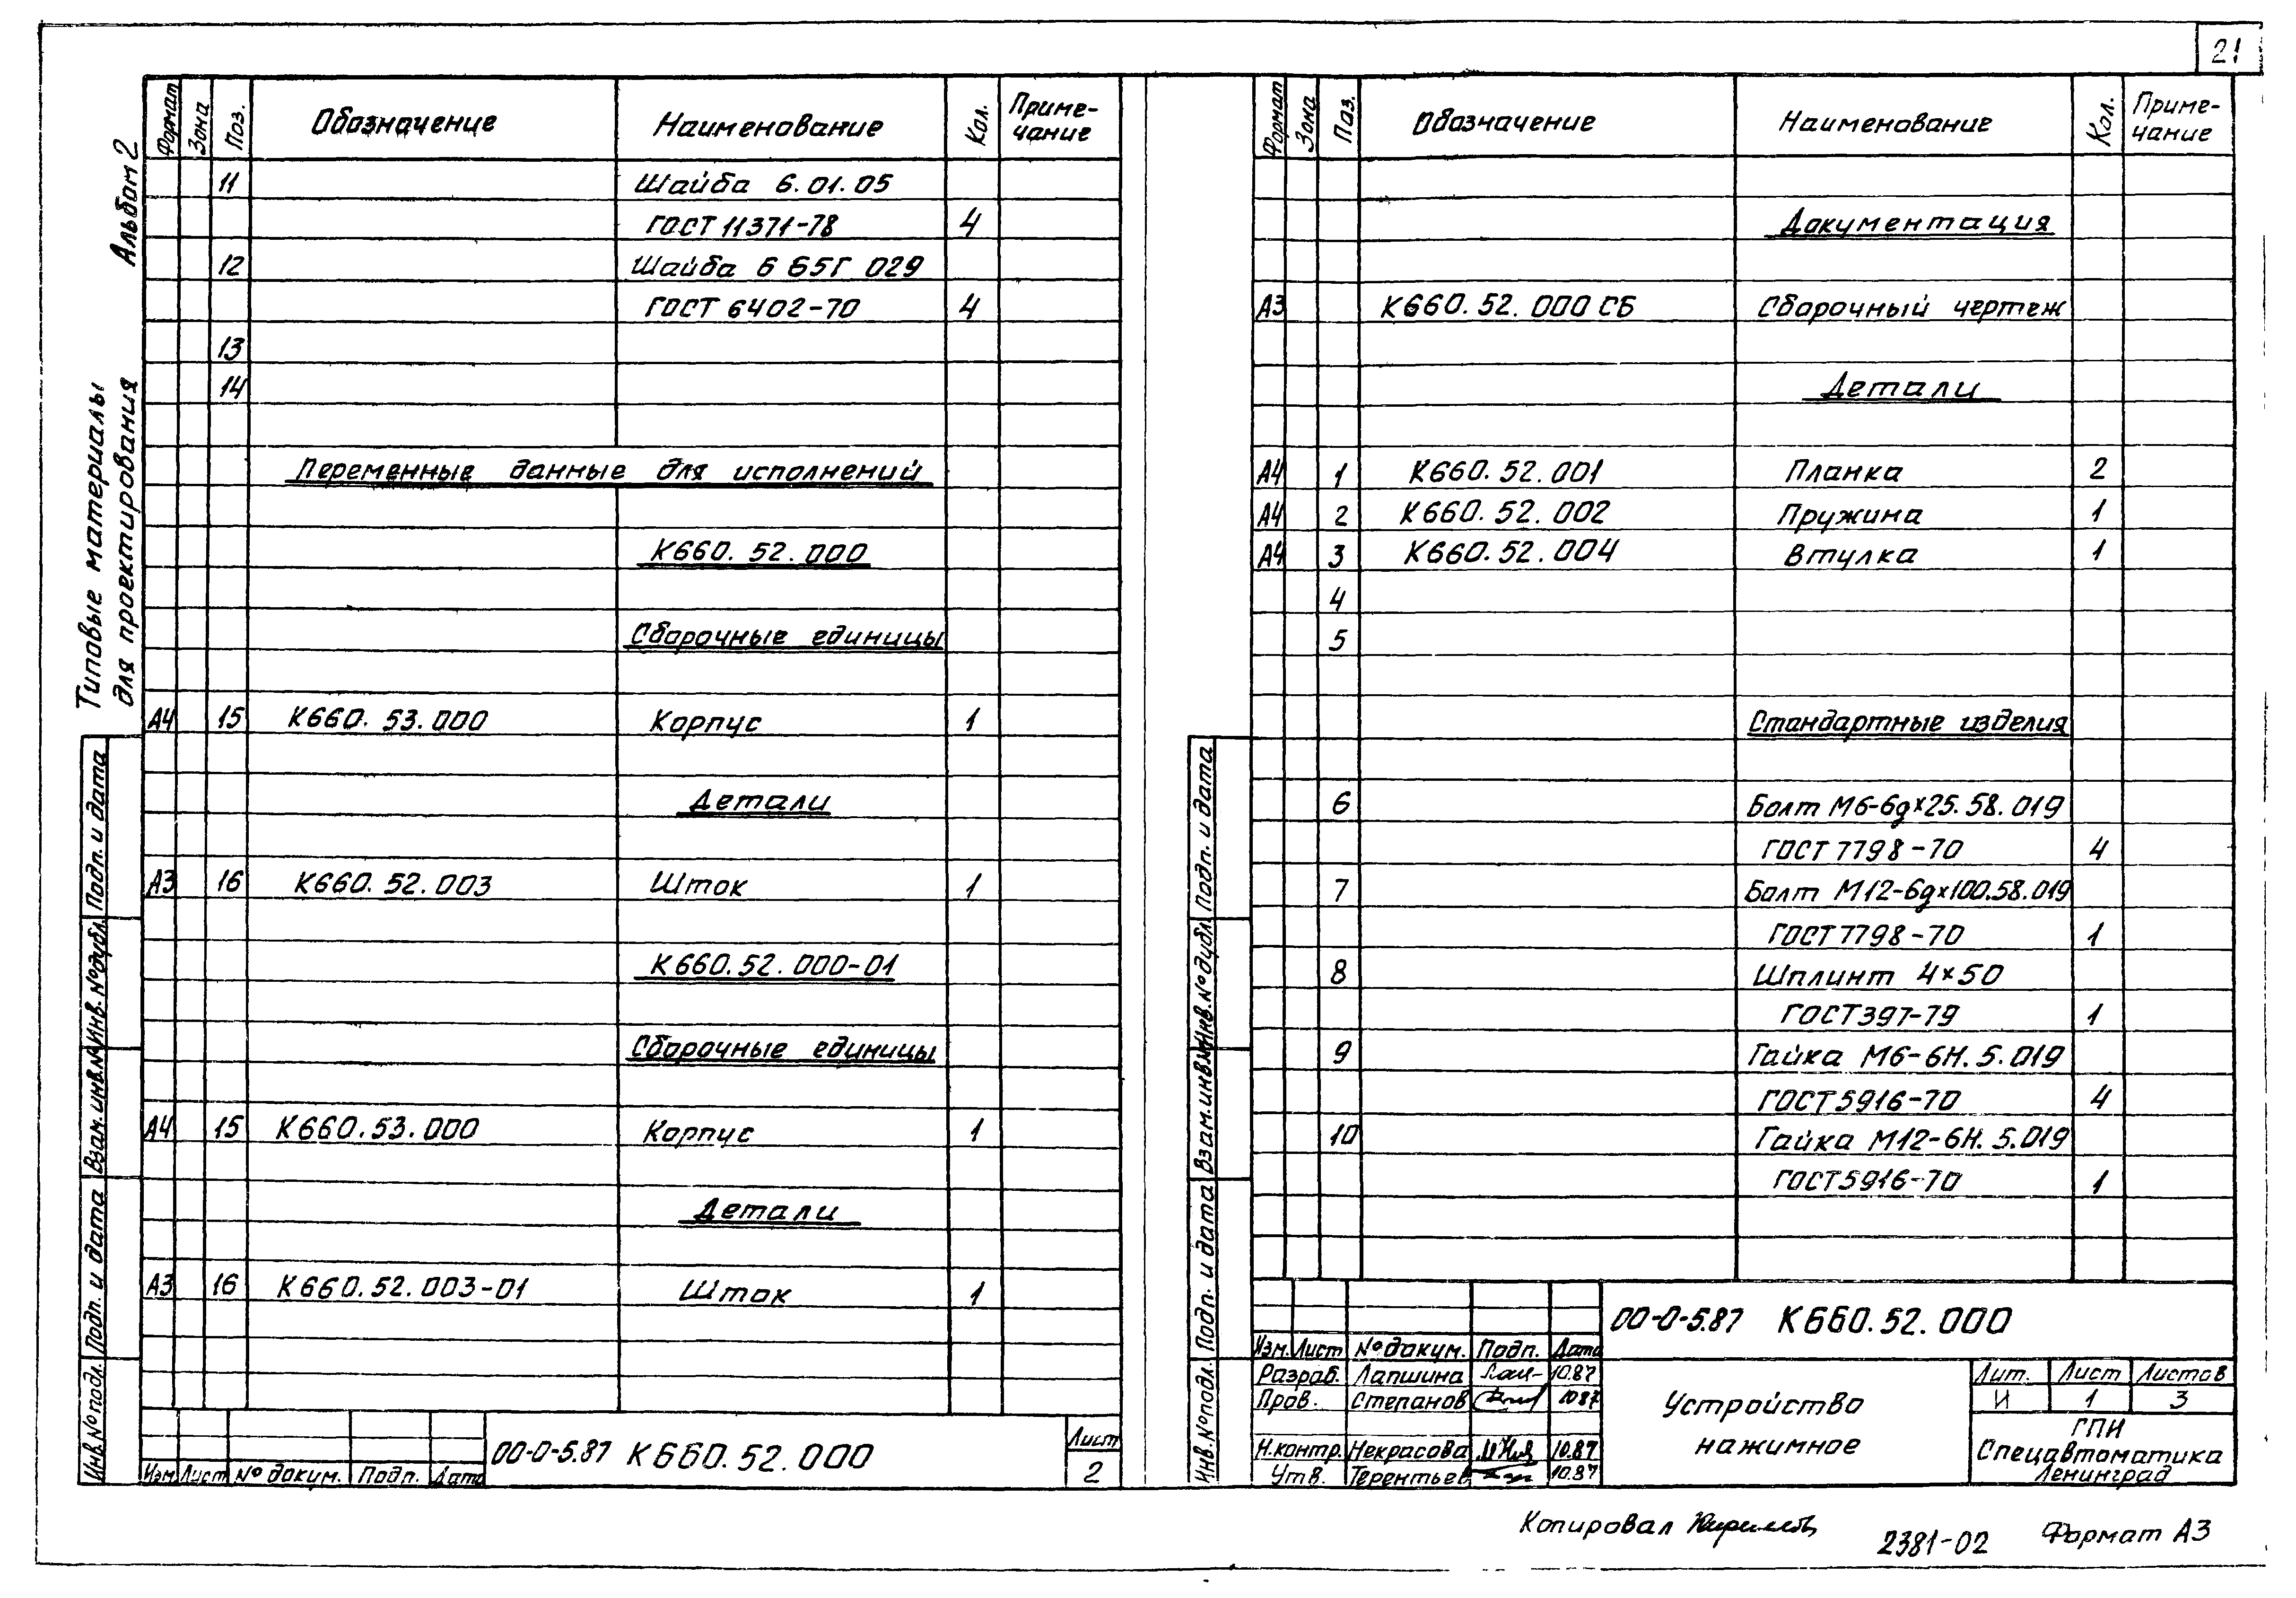 21
Альбом 2
Типовые материалы
для проектирования
Формат Зона Поз. Обозначение Наименование Кол. Приме-
чание
11 Шайба 6.01.05
ГОСТ 11371-78 4
12 Шайба 6 65Г 029
ГОСТ 6402-70 4
13
14
Переменные данные для исполнений
К660.52.000
Сборочные единицы
А4 15 К660.53.000 Корпус 1
Детали
А3 16 К660.52.003 Шток 1
К660.52.000-01
Сборочные единицы
А4 15 К660.53.000 Корпус 1
Детали
А3 16 К660.52.003-01 Шток 1
Инв.№подл. Подп. и дата Взам.инв.№ Инв.№дубл. Подп. и дата
00-0-5.87 К660.52.000
Лист
2
Изм Лист № докум. Подп. Дата
Формат Зона Поз. Обозначение Наименование Кол. Приме-
чание
Документация
А3 К660.52.000 СБ Сборочный чертеж
Детали
А4 1 К660.52.001 Планка 2
А4 2 К660.52.002 Пружина 1
А4 3 К660.52.004 Втулка 1
4
5
Стандартные изделия
6 Болт М6-6g×25.58.019
ГОСТ 7798-70 4
7 Болт М12-6g×100.58.019
ГОСТ 7798-70 1
8 Шплинт 4×50
ГОСТ 397-79 1
9 Гайка М6-6Н.5.019
ГОСТ 5916-70 4
10 Гайка М12-6Н.5.019
ГОСТ 5916-70 1
Инв.№подл. Подп. и дата Взам.инв.№ Инв.№дубл. Подп. и дата
00-0-5.87 К660.52.000
Изм. Лист № докум. Подп. Дата
Разраб. Лапшина 10.87
Пров. Степанов 10.87
Н.контр. Некрасова 10.87
Утв. Терентьев 10.87
Устройство
нажимное
Лит. Лист Листов
И 1 3
ГПИ
Спецавтоматика
Ленинград
Копировал
2381-02
Формат А3